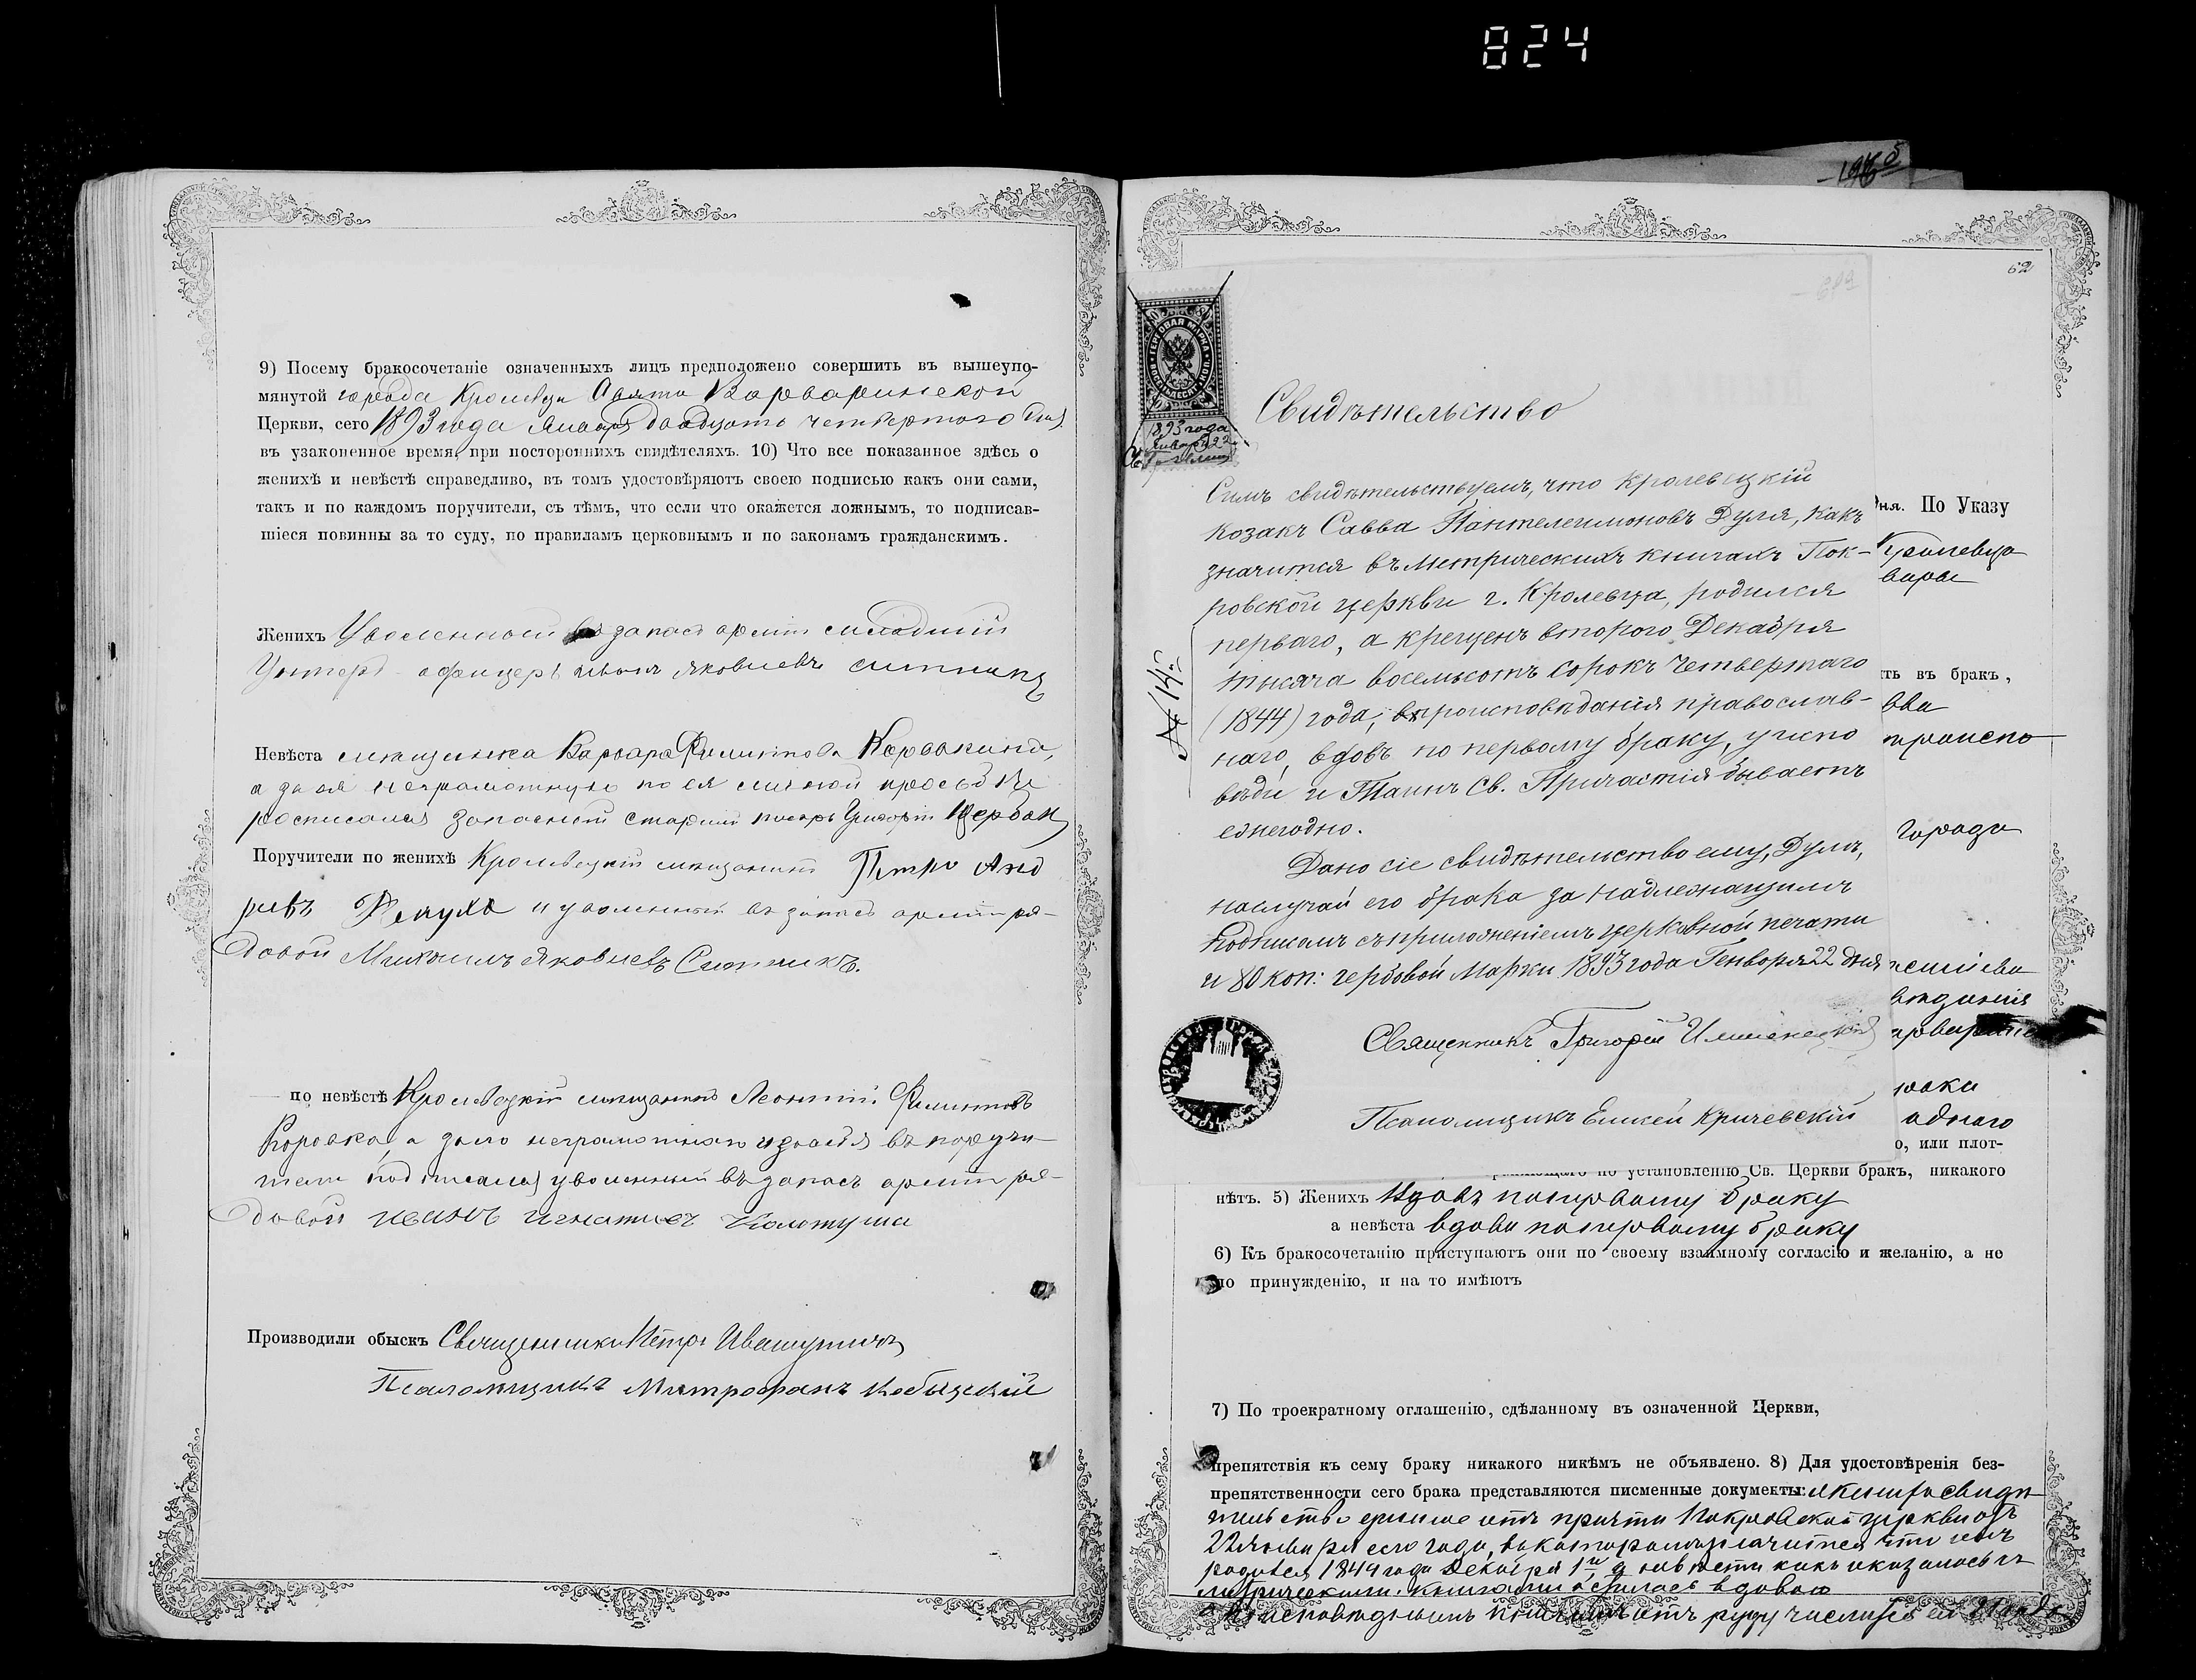 824
9) Посему бракосочетаніе означенныхъ лицъ предположено совершить въ вышеупо-
мянутой города Кролевца Свято Варваринской
Церкви, сего 1893 года Января двадцать четвертого дня
въ узаконенное время, при постороннихъ свидѣтеляхъ. 10) Что все показанное здѣсь о
женихѣ и невѣстѣ справедливо, въ томъ удостовѣряютъ своею подписью какъ они сами,
такъ и по каждомъ поручители, съ тѣмъ, что если что окажется ложнымъ, то подписав-
шіеся повинны за то суду, по правиламъ церковнымъ и по законамъ гражданскимъ.
Женихъ Уволенный въ запасъ арміи младшій
Унтеръ-офицеръ Яковлевъ
Невѣста мѣщанка Варвара Филиппова Коровкина,
а за ея неграмотную по ея личной просьбѣ
росписался запасный старшій писарь Григорій Щербак
Поручители по женихѣ Кролевецкій мѣщанинъ Петръ Анд
реевъ и уволенный въ запасъ арміи ря-
довой Михаилъ Яковлевъ Ситникъ.
по невѣстѣ Кролевецкій мѣщанинъ Леонтій Филипповъ
Коровка, а за него неграмотнаго
подписался уволенный въ запасъ арміи ря-
довой Иванъ Игнатиевъ Колотуша
Производили обыскъ Священникъ Петръ Ивашутичъ
Псаломщикъ Митрофанъ Кобыцкій
62
ГЕРБОВАЯ МАРКА
1893 года
Января 22
Свидѣтельство
Симъ свидѣтельствуемъ, что кролевецкій
козакъ Савва Пантелеимоновъ Дуля, какъ
значится въ метрическихъ книгахъ Пок-
ровской церкви г. Кролевца, родился
перваго, а крещенъ второго Декабря
тысяча восемьсотъ сорокъ четвертаго
(1844) года, вѣроисповѣданія православ-
наго, вдовъ по первому браку, у испо
вѣди и Таинъ Св. Причастія бываетъ
ежегодно.
Дано сіе свидѣтельство ему, Дулѣ,
на случай его брака за надлежащимъ
подписомъ съ приложеніемъ церковной печати
и 80 коп: гербовой марки 1893 года Генваря 22 дня
№ 14.
Священникъ Григорій
Псаломщикъ Елисей Кричевскій
ня. По Указу
Кролевца
вары
ть въ бракъ,
вва
города
однаго
о, или плот-
по установленію Св. Церкви бракъ, никакого
нѣтъ. 5) Женихъ вдовъ по первому браку
а невѣста вдова по первому браку
6) Къ бракосочетанію приступаютъ они по своему взаимному согласію и желанію, а не
по принужденію, и на то имѣютъ
7) По троекратному оглашенію, сдѣланному въ означенной Церкви,
препятствія къ сему браку никакого никѣмъ не объявлено. 8) Для удостовѣренія без-
препятственности сего брака представляются писменные документы: свидѣ
тельство отъ причта Покровской церкви отъ
22 января сего года, въ которомъ значится что онъ
родился 1844 года Декабря 1го, а невѣста какъ оказалось въ
метрическихъ книгахъ вдовою